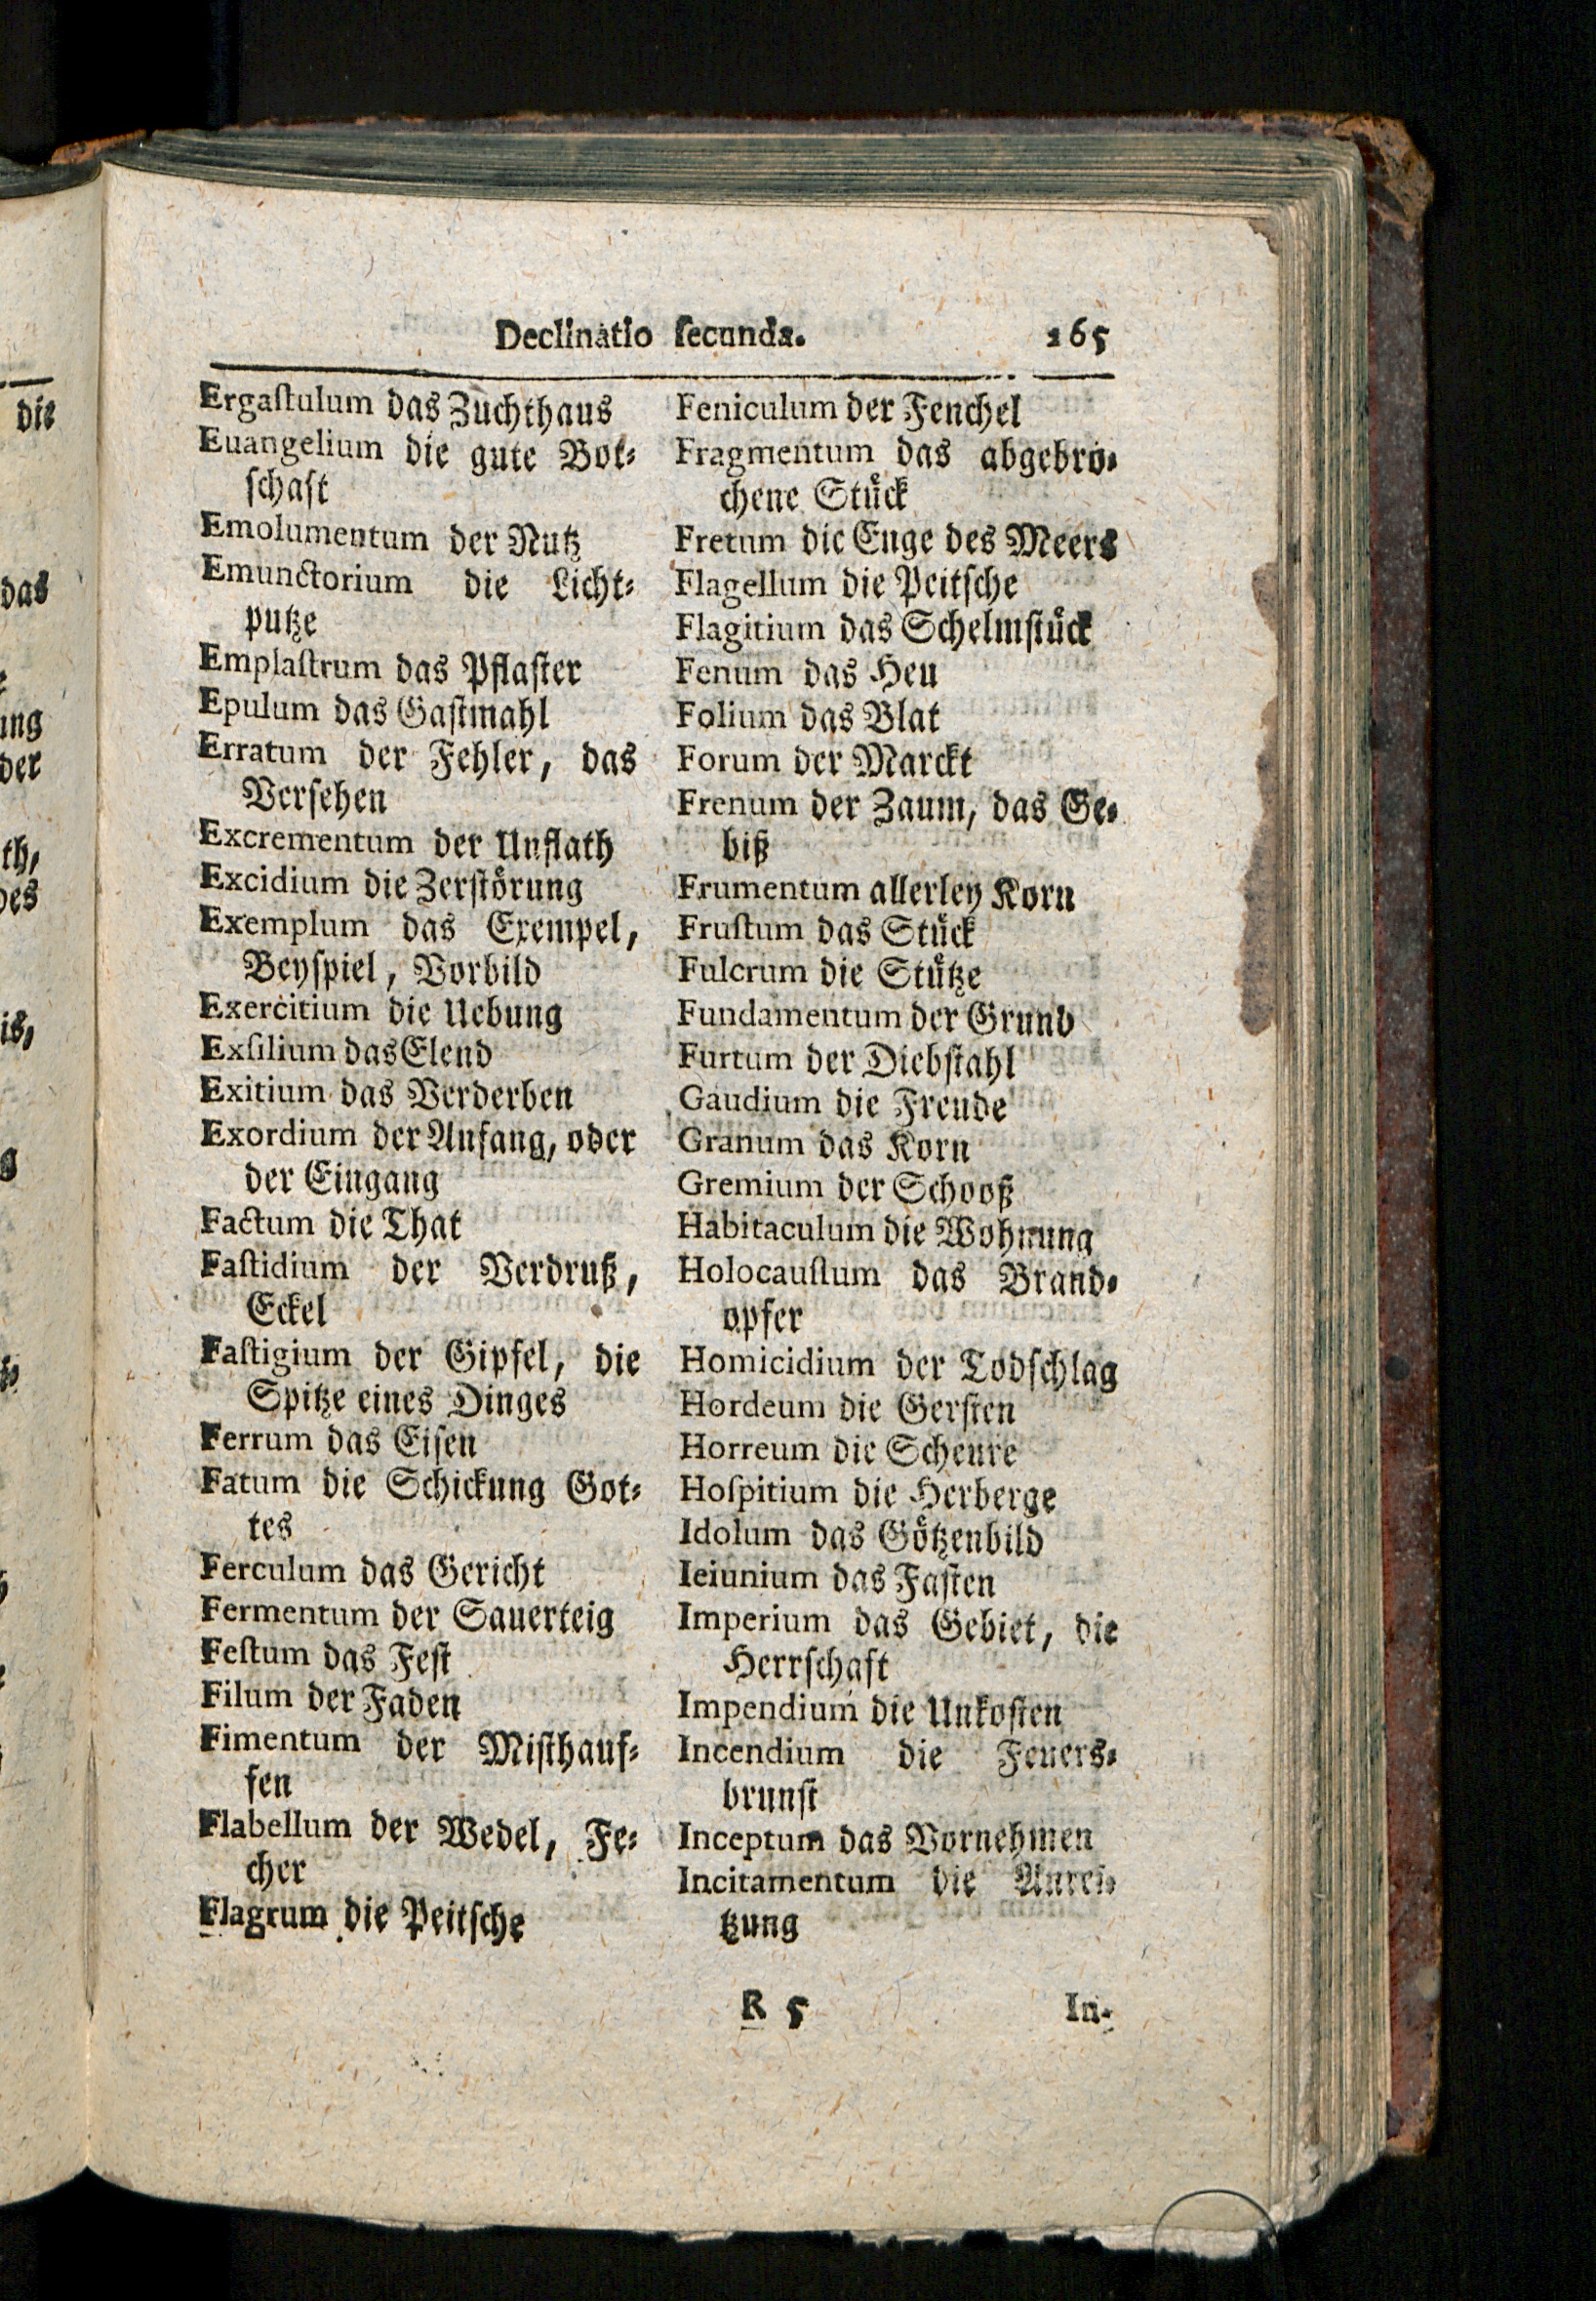 Declinatio ſecunda. 265
Ergaſtulum das Zuchthaus
Euangelium die gute Bot⸗
ſchaft
Emolumentum der Nutz
Emunctorium die Licht⸗
putze
Emplaſtrum das Pflaſter
Epulum das Gaſtmahl
Erratum der Fehler, das
Verſehen
Excrementum der Unflath
Excidium die Zerſtörung
Exemplum das Exempel,
Beyſpiel, Vorbild
Exercitium die Uebung
Exſilium das Elend
Exitium das Verderben
Exordium der Anfang, oder
der Eingang
Factum die That
Faſtidium der Verdruß,
Eckel
Faſtigium der Gipfel, die
Spitze eines Dinges
Ferrum das Eiſen
Fatum die Schickung Got⸗
tes
Ferculum das Gericht
Fermentum der Sauerteig
Feſtum das Feſt
Filum der Faden
Fimentum der Miſthauf⸗
fen
Flabellum der Wedel, Fe⸗
cher
Flagrum die Peitſche
Feniculum der Fenchel
Fragmentum das abgebro⸗
chene Stück
Fretum die Enge des Meers
Flagellum die Peitſche
Flagitium das Schelmſtück
Fenum das Heu
Folium das Blat
Forum der Marckt
Frenum der Zaum, das Ge⸗
biß
Frumentum allerley Korn
Fruſtum das Stück
Fulcrum die Stütze
Fundamentum der Grund
Furtum der Diebſtahl
Gaudium die Freude
Granum das Korn
Gremium der Schooß
Habitaculum die Wohnung
Holocauſtum das Brand⸗
opfer
Homicidium der Todſchlag
Hordeum die Gerſten
Horreum die Scheure
Hoſpitium die Herberge
Idolum das Götzenbild
Ieiunium das Faſten
Imperium das Gebiet, die
Herrſchaft
Impendium die Unkoſten
Incendium die Feuers⸗
brunſt
Inceptum das Vornehmen
Incitamentum die Anrei⸗
tzung
R 5 In-